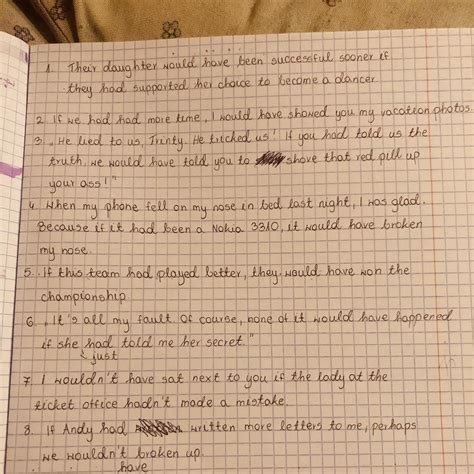 1. Their daughter would have been successful sooner if
they had supported her choice to become a dancer
2. If we had had more time, I would have showed you my vacation photos.
3. „He lied to us, Trinty. He tricked us! If you had told us the
truth, we would have told you to shove that red pill up
your ass!"
4. When my phone fell on my nose in bed last night, I was glad.
Because if it had been a Nokia 3310, it would have broken
my nose.
5. If this team had played better, they would have won the
championship
6. „It's all my fault. Of course, none of it would have happened
if she had told me her secret."
just
7. I wouldn't have sat next to you if the lady at the
ticket office hadn't made a mistake.
8. If Andy had written more letters to me, perhaps
we wouldn't broken up.
have